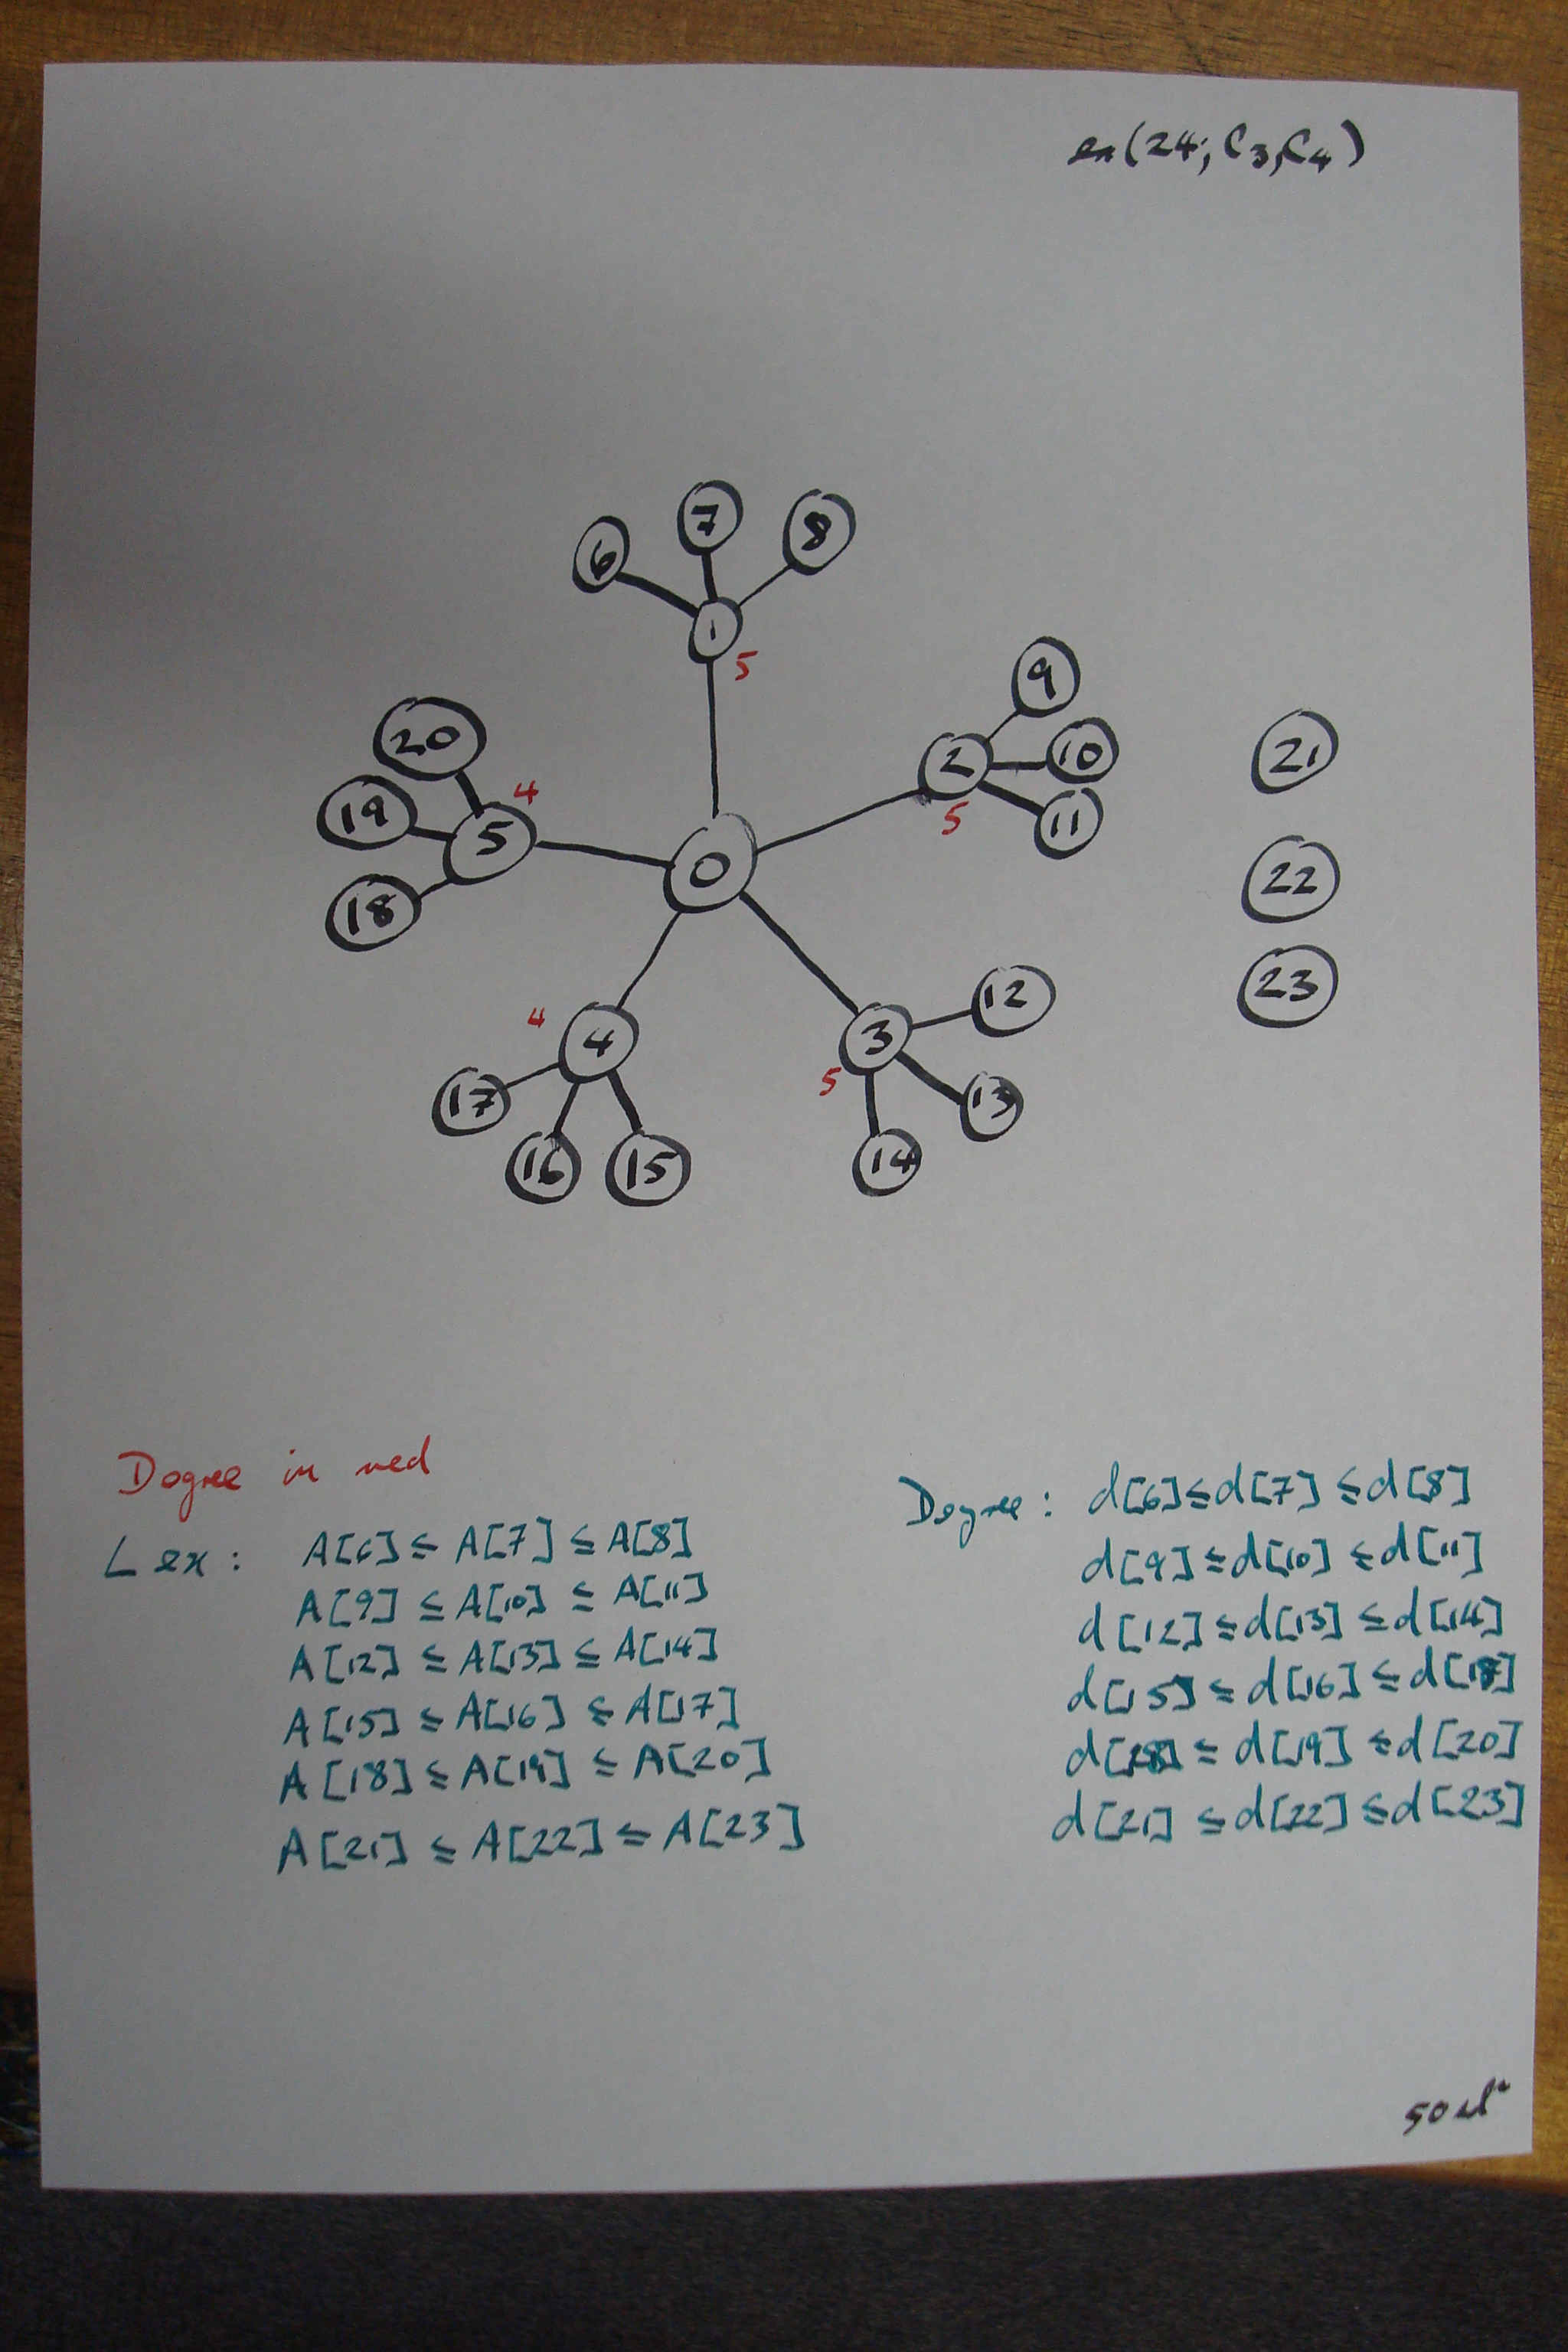 ex(24; C3,C4)
6 7 8
1
5
9
2
10
11
5
20
4
19
5
18
0
21
22
23
4
4
17
16
15
12
3
5
13
14
Degree in red
Lex: A[6] ≤ A[7] ≤ A[8]
A[9] ≤ A[10] ≤ A[11]
A[12] ≤ A[13] ≤ A[14]
A[15] ≤ A[16] ≤ A[17]
A[18] ≤ A[19] ≤ A[20]
A[21] ≤ A[22] ≤ A[23]
Degree: d[6] ≤ d[7] ≤ d[8]
d[9] ≤ d[10] ≤ d[11]
d[12] ≤ d[13] ≤ d[14]
d[15] ≤ d[16] ≤ d[17]
d[18] ≤ d[19] ≤ d[20]
d[21] ≤ d[22] ≤ d[23]